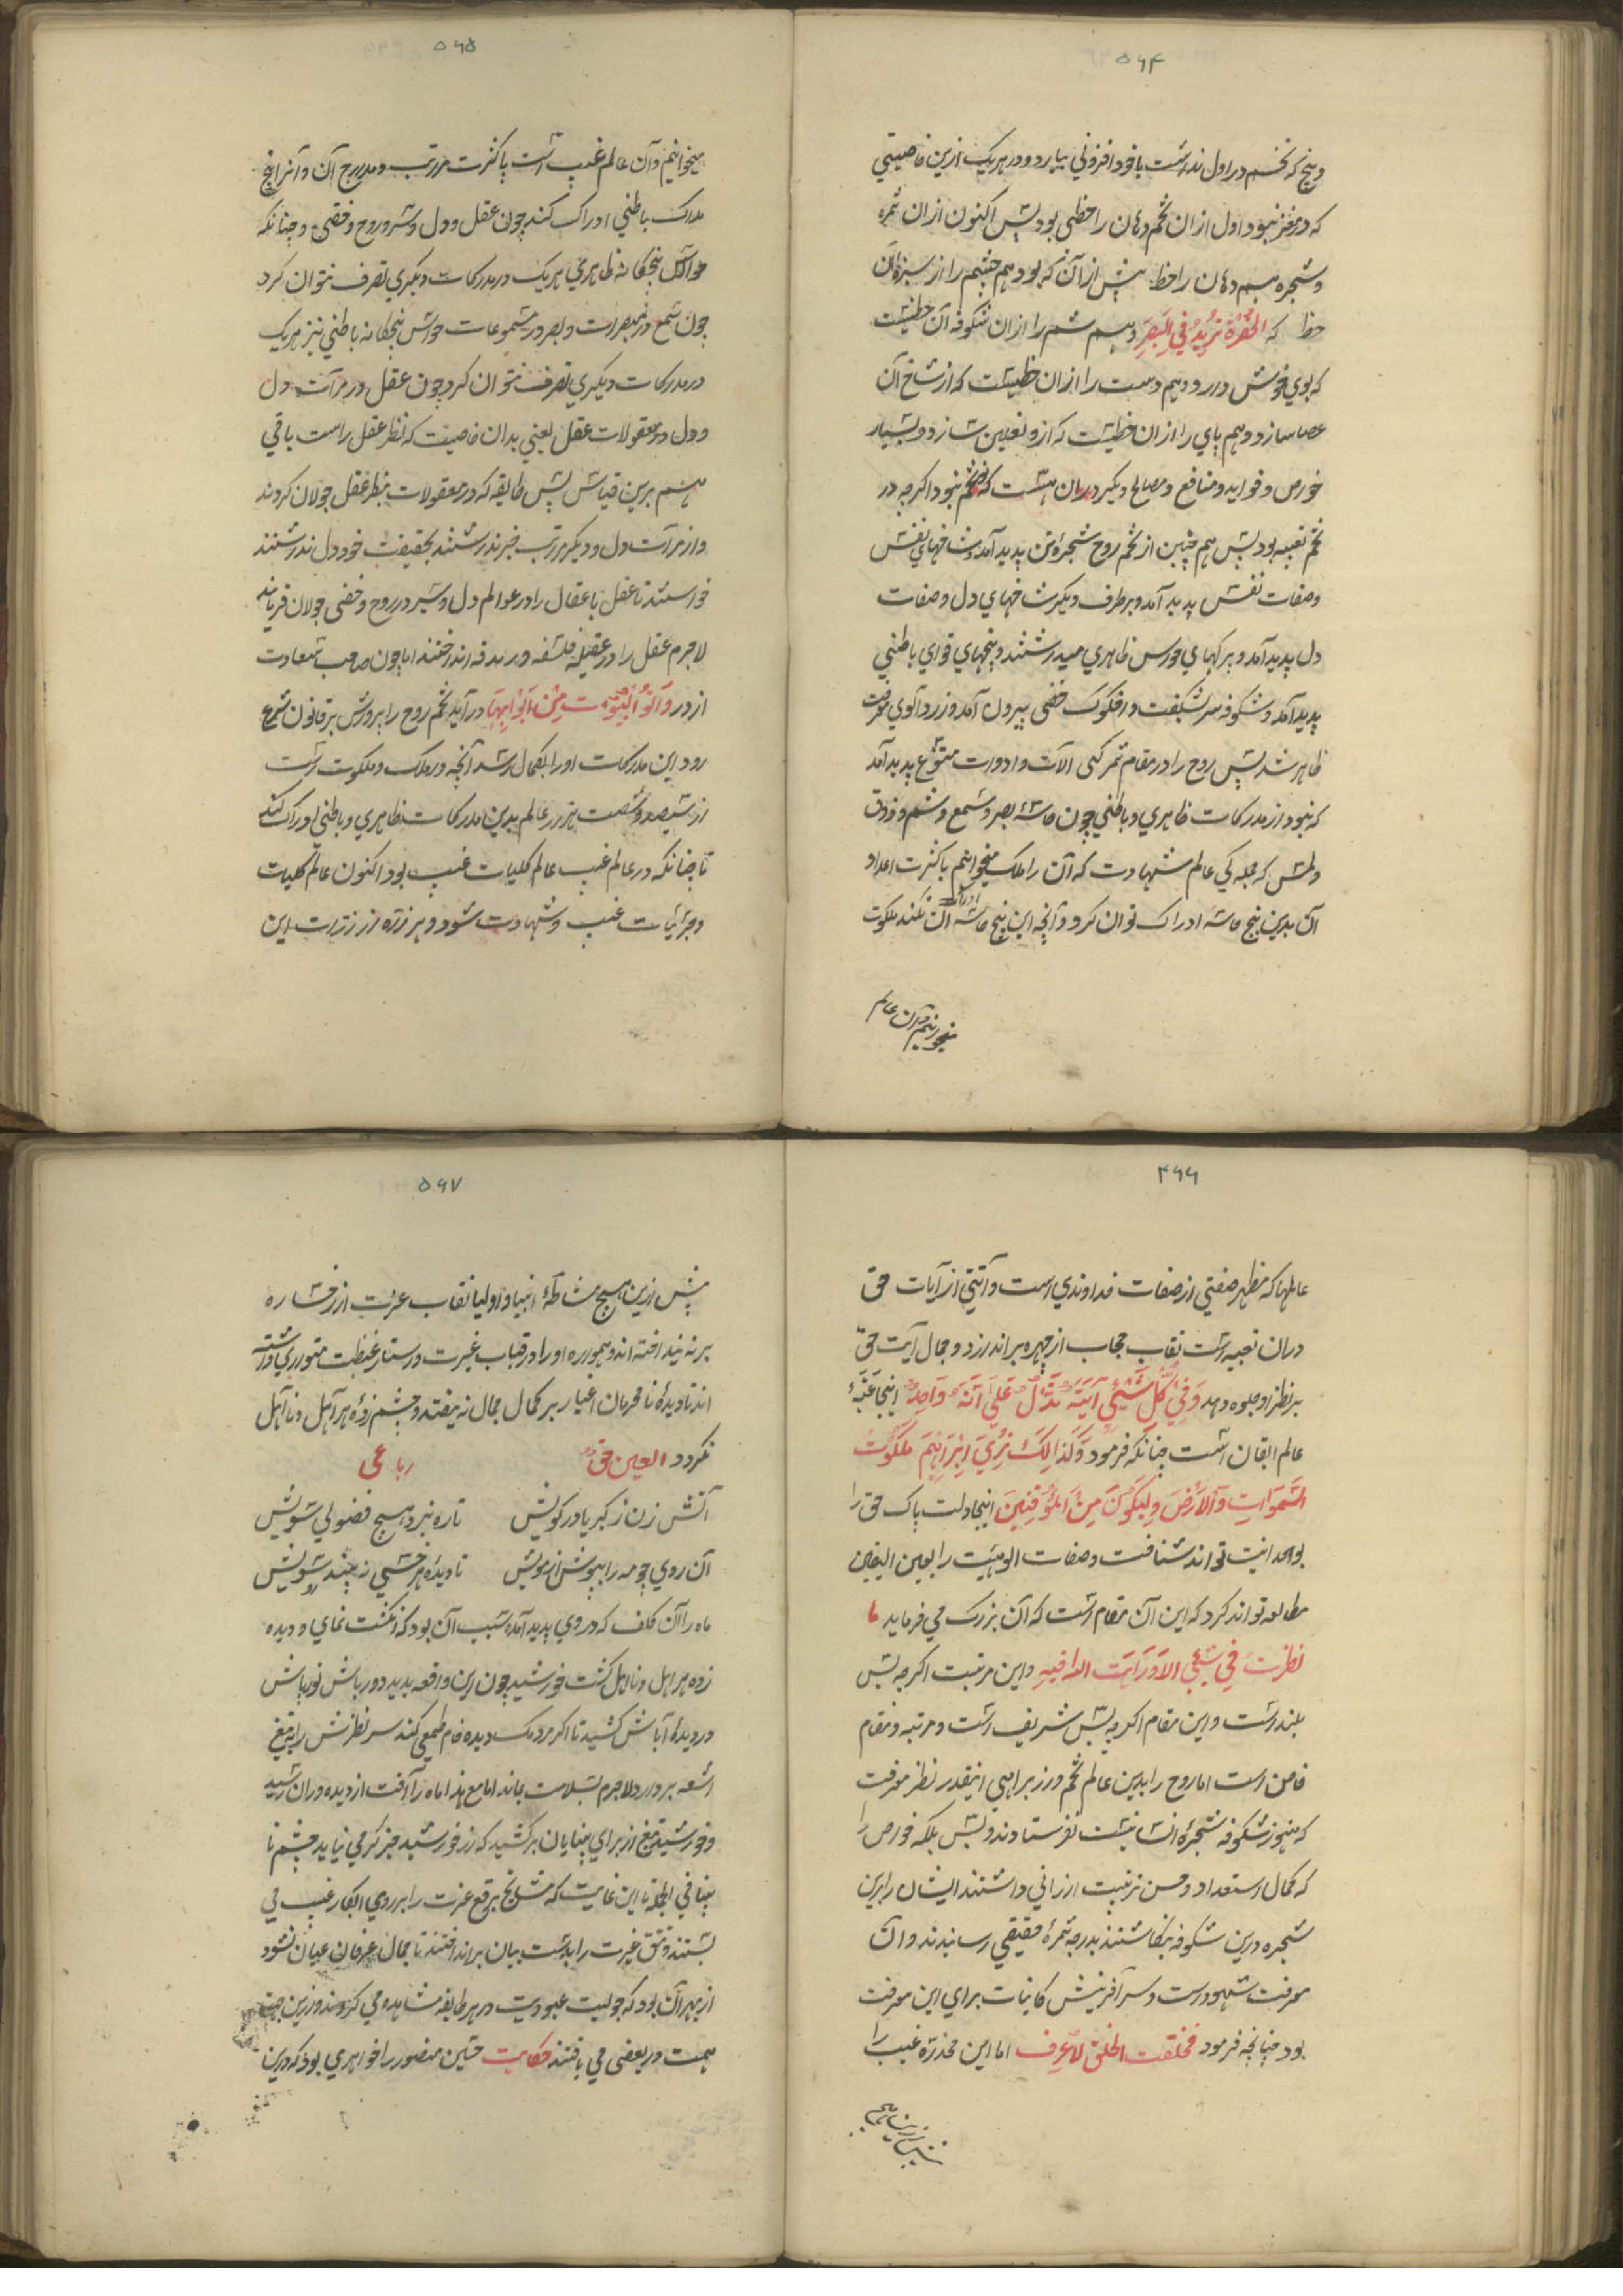 ۵۶۴
وبیخ که تخم در اول نداشت با خود افزونی بیارد و در هریک ازین خاصیتی
که در مغز نبود اول ازان تخم دهان را حظی بود پس اکنون ازان ثمره
وشجره هم دهان را حظ بیش از آن که بود هم چشم را از سبزه آن
حظ که الخضرة تزید فی البصر وهم شم را ازان شکوفه آن حظیست
که بوی خوش دارد وهم دست را ازان حظیست که از شاخ آن
عصا سازد وهم پای را ازان حظیست که ازو نعلین سازد و بسیار
خواص و فواید و منافع و مصالح دیگر دران هست که در تخم نبود اگرچه در
تخم تعبیه بود پس هم چنین از تخم روح شجرهٔ تن پدید آمد وشاخهای نفس
وصفات نفس پدید آمد و برطرف دیگر شاخهای دل وصفات
دل پدید آمد و برکهای حواس ظاهری میداشتند و بیخهای قوای باطنی
پدید آمد وشکوفه سر بشکفت و اخکوک خفی بیرون آمد و زردآلوی معرفت
ظاهر شد پس روح را در مقام ثمرکی آلات وادوات متنوع پدید آمد
که نبود از مدرکات ظاهری وباطنی چون حاسهٔ بصر وسمع وشم وذوق
ولمس که جملکی عالم شهادت که آن را ملک میخوانیم با کثرت اعداد
آن بدین پنج حاسه ادراک توان کرد وآنچه این پنج حاسه ادراک آن نکند ملکوت
میخوانیم وآن عالم
۵۶۵
میخوانیم وآن عالم غیب است با کثرت مراتب ومدارج آن وآنرا پنج
مدرک باطنی ادراک کند چون عقل ودل وسر وروح وخفی وچنانکه
حواس پنجکانه ظاهری هریک در مدرکات دیگری تصرف نتوان کرد
چون سمع در مبصرات وبصر در مسموعات حواس پنجکانه باطنی نیز هریک
در مدرکات دیگری تصرف نتوان کرد چون عقل در مرآت دل
ودل در معقولات عقل یعنی بدان خاصیت که نظر عقل راست باقی
هم برین قیاس پس طایفه که در معقولات بنظر عقل جولان کردند
واز مرآت دل ودیگر مراتب خبر نداشتند بحقیقت خود دل نداشتند
خواستند تا عقل با عقال را در عوالم دل وسر وروح وخفی جولان فرمایند
لاجرم عقل را در عقیلهٔ فلسفه وزندقه انداختند اما چون صاحب سعادت
از در وأتوا البیوت من ابوابها درآید تخم روح را پرورش بر قانون شرع
رود این مدرکات او را بکمال رسد آنچه در ملک وملکوت است
از سیصد وشصت هزار عالم بدین مدرکات ظاهری وباطنی ادراک کند
تا چنانکه در عالم غیب عالم کلیات غیب بود اکنون عالم کلیات
وجزئیات غیب وشهادت شود وهر ذره از ذرات این
۴۶۶
عالمها که مظهر صفتی از صفات خداوندی است وآیتی از آیات حق
دران تعبیه است نقاب حجاب از چهره براندازد وجمال آیت حق
برنظر او جلوه دهد وفی کل شیئ آیة تدل علی انه واحد اینجا عتبهٔ
عالم ایقان است چنانکه فرمود وکذالک نری ابراهیم ملکوت
السموات والارض ولیکون من الموقنین اینجا ذات پاک حق را
بوحدانیت تواند شناخت وصفات الوهیت را بعین الیقین
مطالعه تواند کرد که این آن مقام است که آن بزرک می فرماید ما
نظرت فی شیئی الا ورایت الله فیه واین مرتبت اگرچه بس
بلند است واین مقام اگرچه بس شریف است ومرتبه ومقام
خاص است اما روح را بدین عالم تخم وار برای اینقدر نظر معرفت
که هنوز شکوفه شجرهٔ انسانیست نفرستادند وبس بلکه خواص را
که کمال استعداد وحسن تربیت ارزانی داشتند ایشان را برین
شجره درین شکوفه بنکاشتند بدرجه ثمرهٔ حقیقی رسانیدند وآن
معرفت شهود است وسر آفرینش کاینات برای این معرفت
بود چنانچه فرمود فخلقت الخلق لاعرف اما این مخدرهٔ غیب را
پیش ازین هیچ
۵۶۷
پیش ازین هیچ مشاطهٔ انبیا واولیا نقاب عزت از رخساره
برنینداخته اند وهمواره او را در قباب غیرت وستار غیظت متواری داشته
اند تا دیدهٔ نامحرمان اغیار بر کمال جمال نیفتد وچشم زدهٔ هر اهل ونااهل
نکردد العین حق رباعی
آتش زن ز کبریا در کویش تا ره نبرد هیچ فضولی سویش
آن روی چو مه را بپوش از مویش تا دیدهٔ هر خسی نه بیند سویش
ماه را آن کلف که در وی پدید آمد سبب آن بود که انکشت نمای ودیده
زده هر اهل ونااهل کشت خورشید چون این واقعه بدید دورباش نورپاش
در دیدهٔ آباش کشید تا اگر مردمک دیده خام طمعی کند سر نظرش را بتیغ
اشعه بردارد لاجرم بسلامت بماند اما مع هذا ماه را آفت از دیده وران رسید
وخورشید تیغ از برای بینایان برکشید که از خورشید جز کرمی نیابد چشم نا
بینا فی الجمله تا این غایت که مشایخ برقع عزت را بر روی ابکار غیب می
بستند وتتق غیرت را بدست بیان برانداختند تا جمال عرفان عیان نشود
از بهر آن بود که جولیت عبودیت در هر طایفه مشاهده می کردند وازین جهت
همت در بعضی می یافتند حکایت حسین منصور را خواهری بود که درین